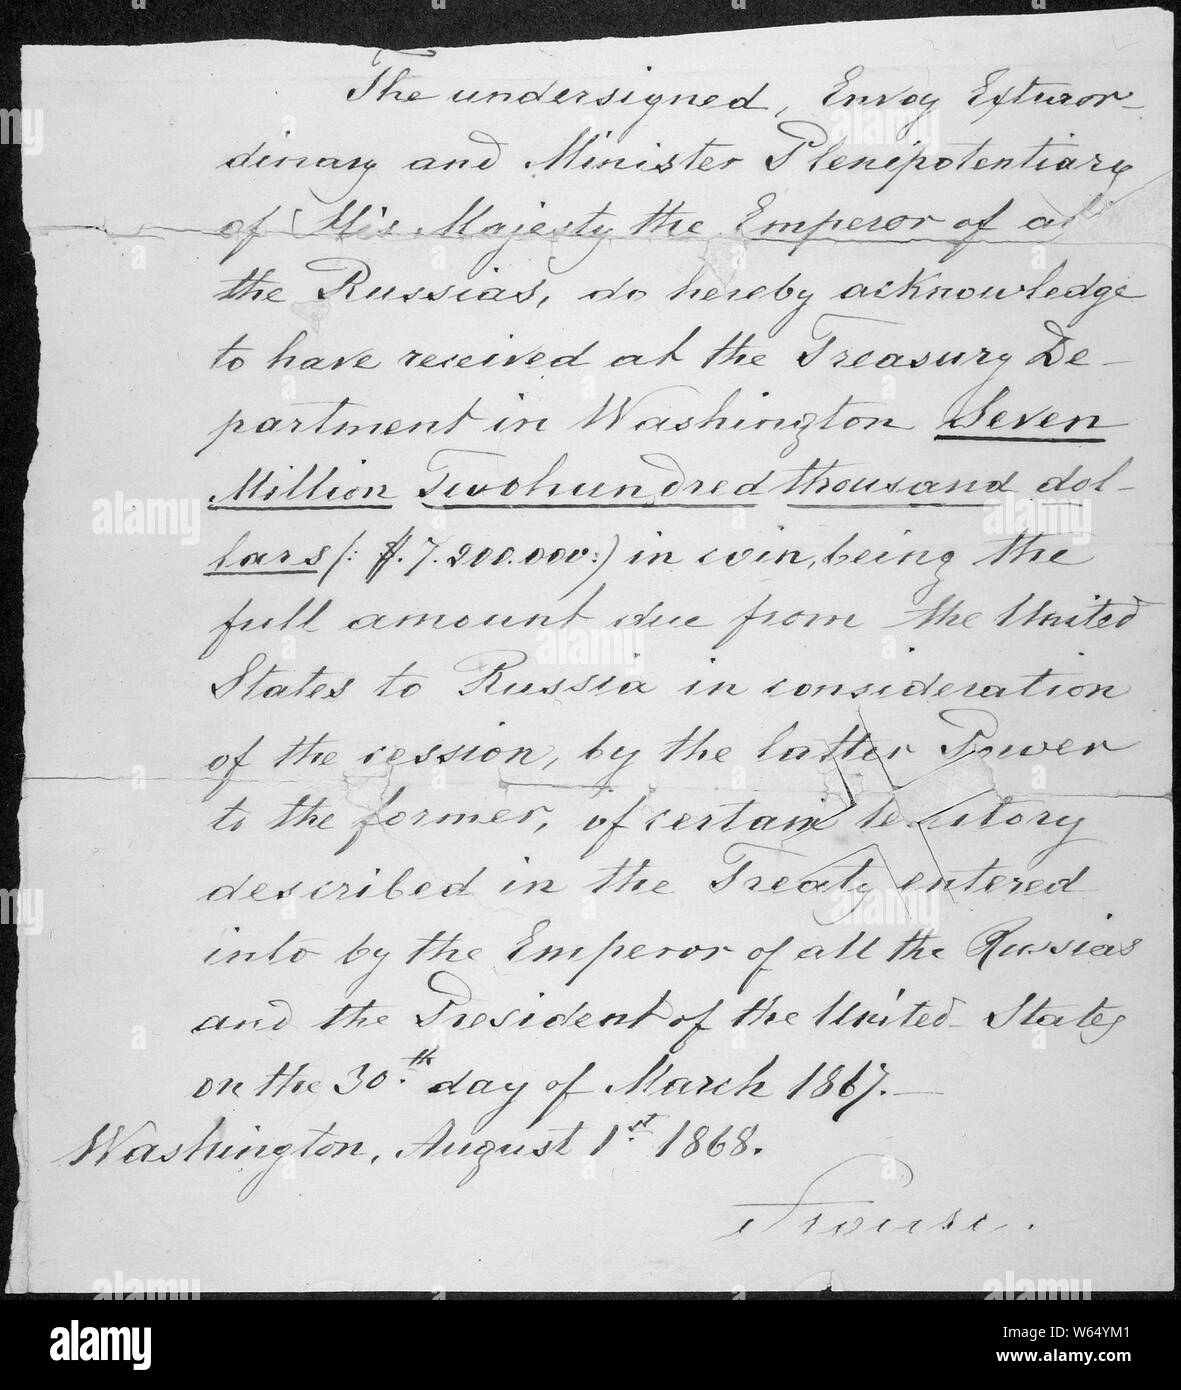 The undersigned, Envoy Extraor-
dinary and Minister Plenipotentiary
of His Majesty the Emperor of al
the Russias, do hereby acknowledge
to have received at the Treasury De-
partment in Washington Seven
Million Twohundred thousand dol-
lars (: $. 7.200.000:) in coin, being the
full amount due from the United
States to Russia in consideration
of the cession, by the latter Power
to the former, of certain territory
described in the Treaty entered
into by the Emperor of all the Russias
and the President of the United States
on the 30.th day of March 1867.—
Washington, August 1st 1868.
alamy
www.alamy.com
Image ID: W64YM1